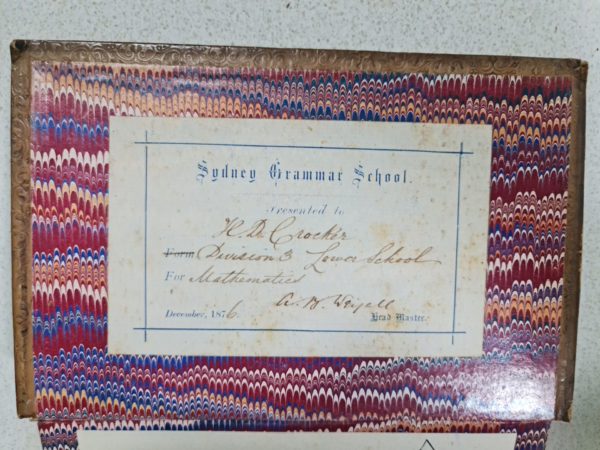 Sydney Grammar School.
Presented to
H. D. Crocker
Form Division 3 Lower School
For Mathematics
A. B. Weigall
December, 1876. Head Master.